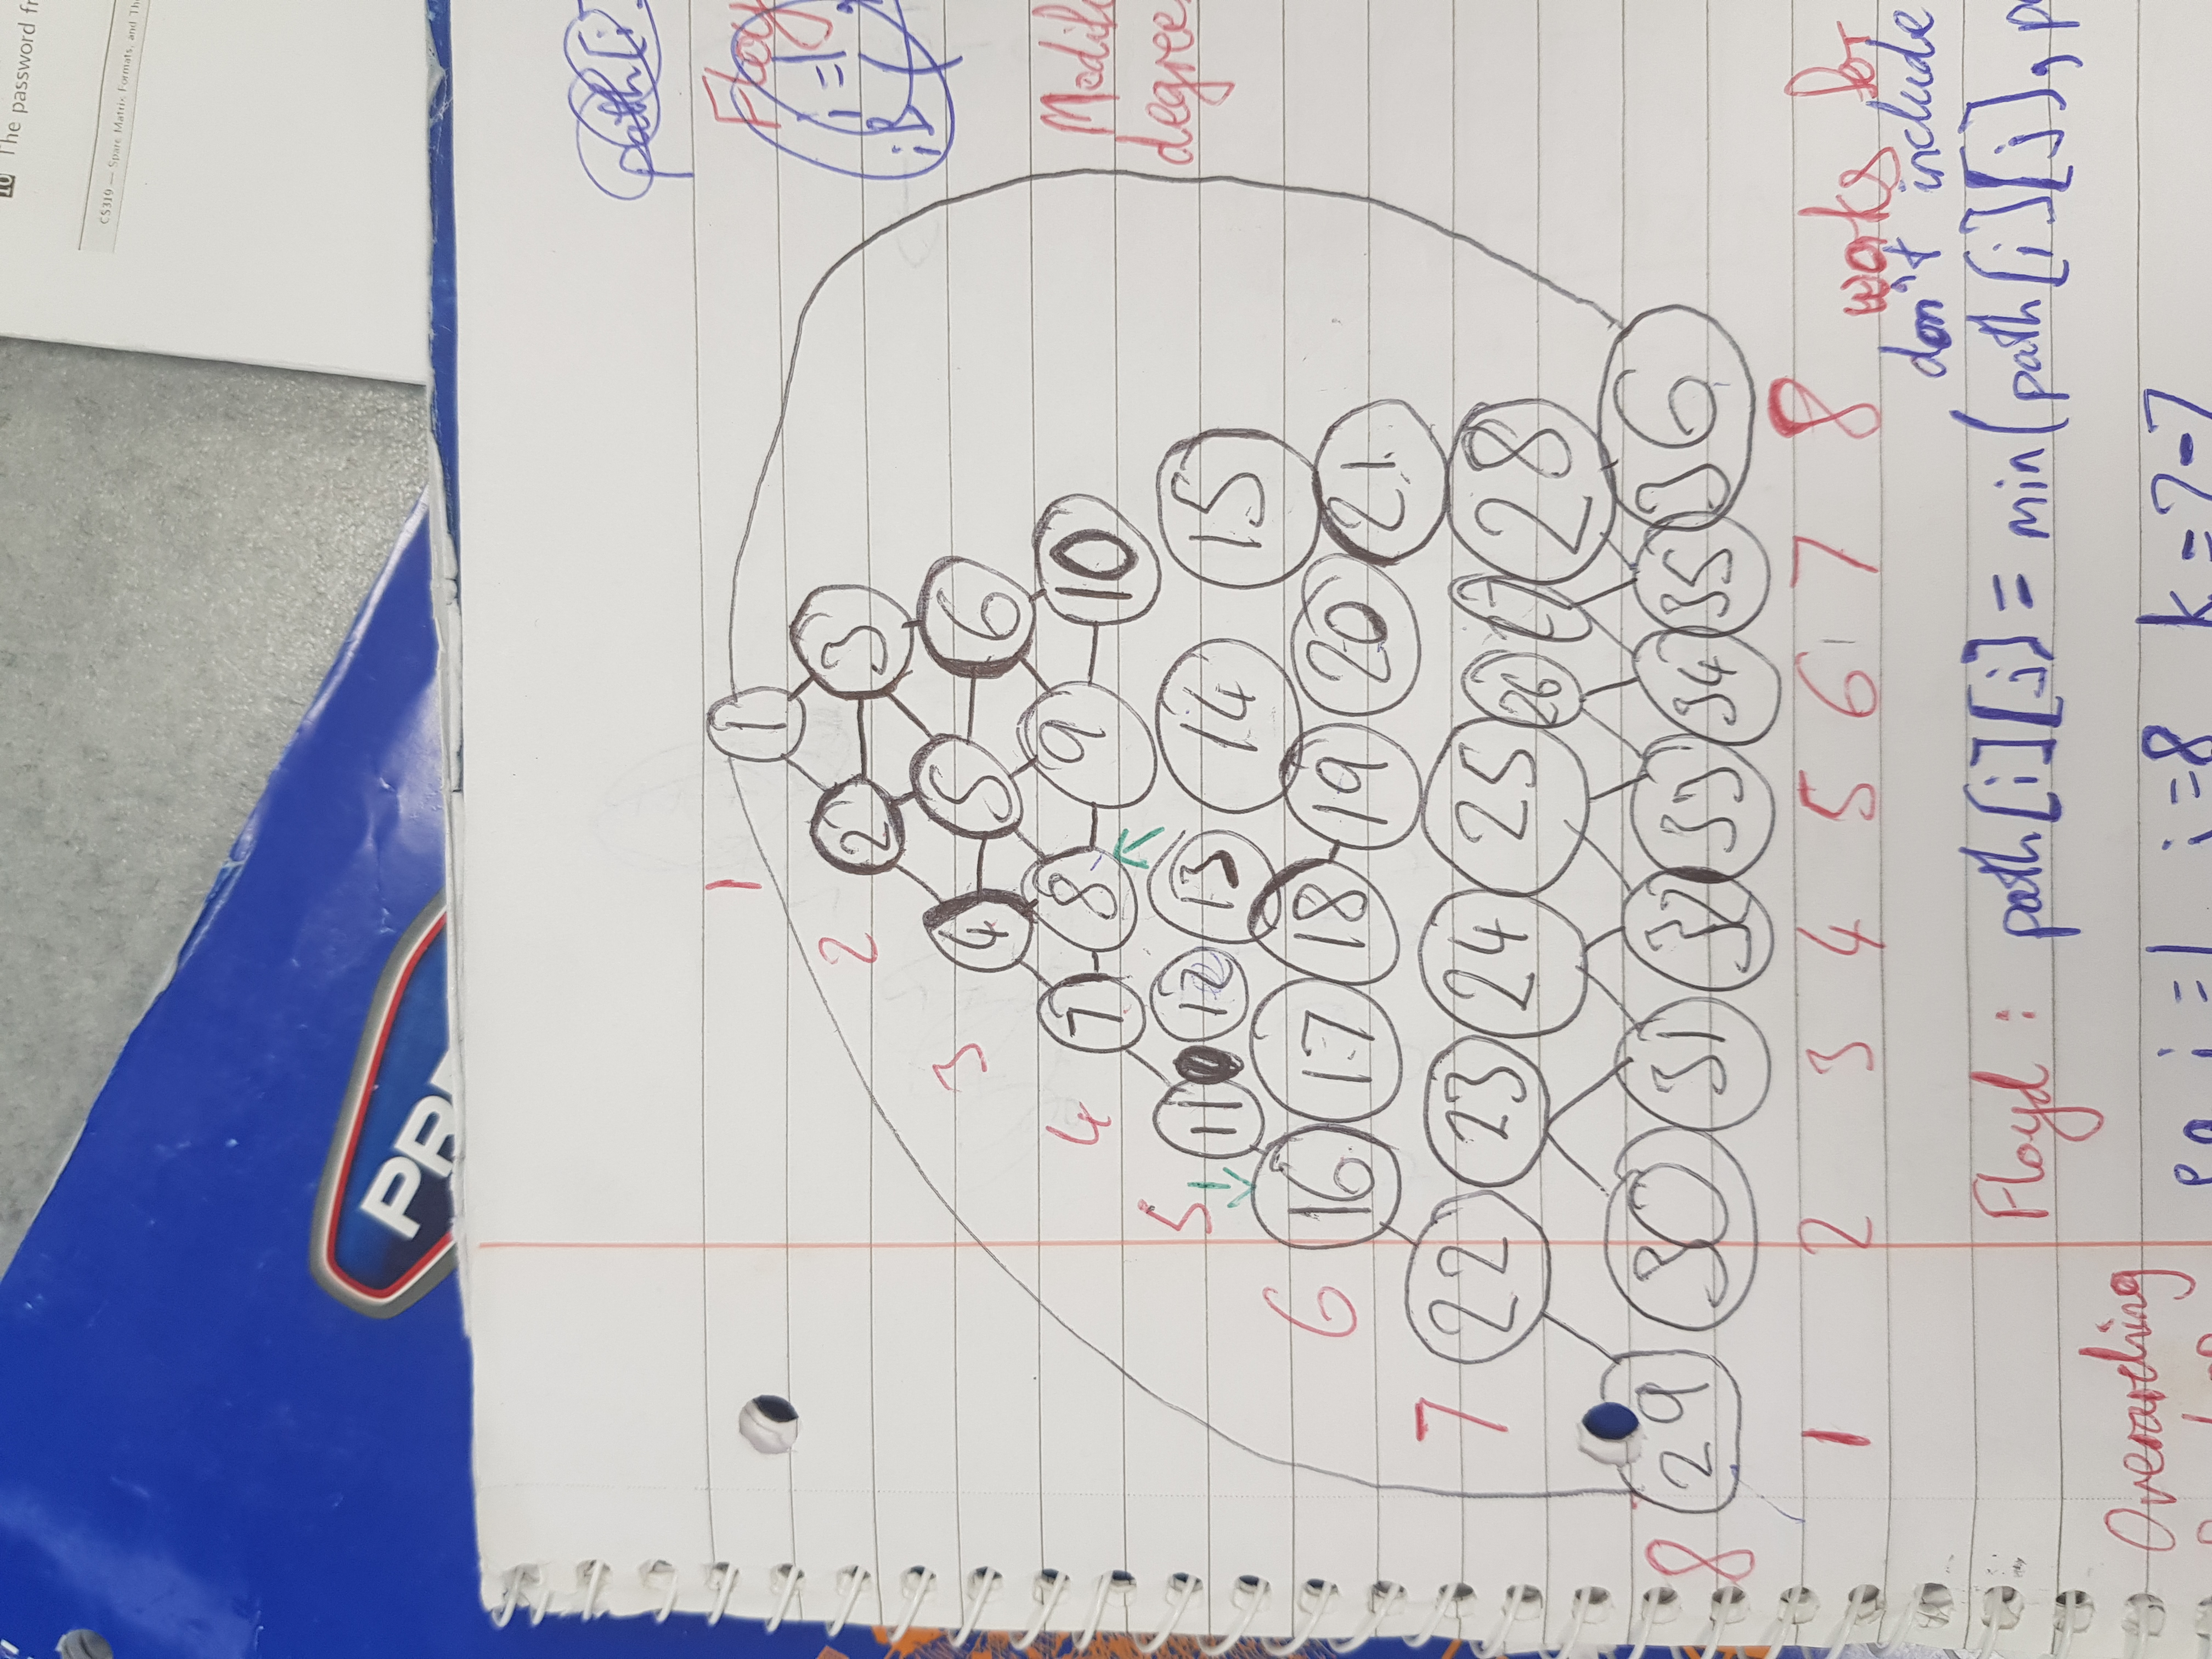 10 The password
CS319 — Sparc Matrix Formats, and
path[i
1 1
2 2 3
3 4 5 6
4 7 8 9 10
5 11 12 13 14 15
6 16 17 18 19 20 21
7 22 23 24 25 26 27 28
8 29 30 31 32 33 34 35 36
1 2 3 4 5 6 7 8 works for
don't include
Floyd : path[i][j] = min(path[i][j],
Overarching
eg i = 1 j = 8 k = 2-7